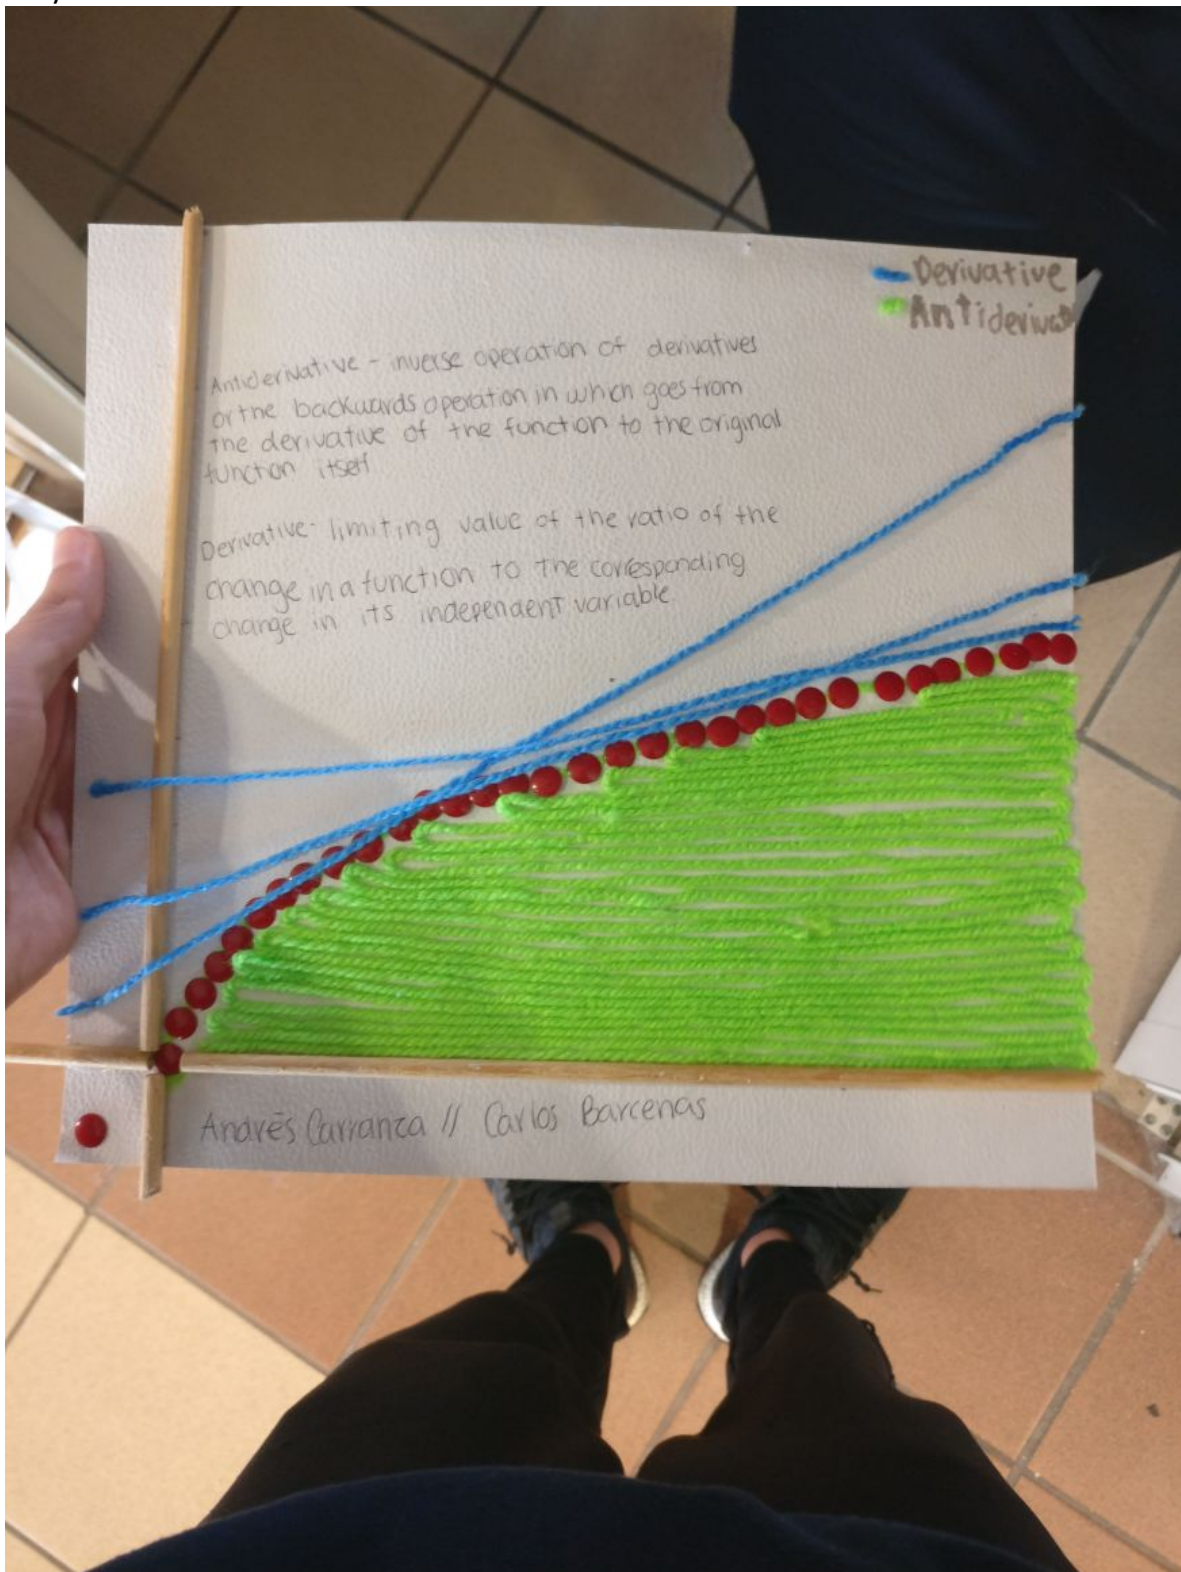 Derivative
Antiderivat
Antiderivative - inverse operation of derivatives
or the backwards operation in which goes from
the derivative of the function to the original
function itself
Derivative - limiting value of the ratio of the
change in a function to the corresponding
change in its independent variable
Andrēs Carranza // Carlos Barcenas